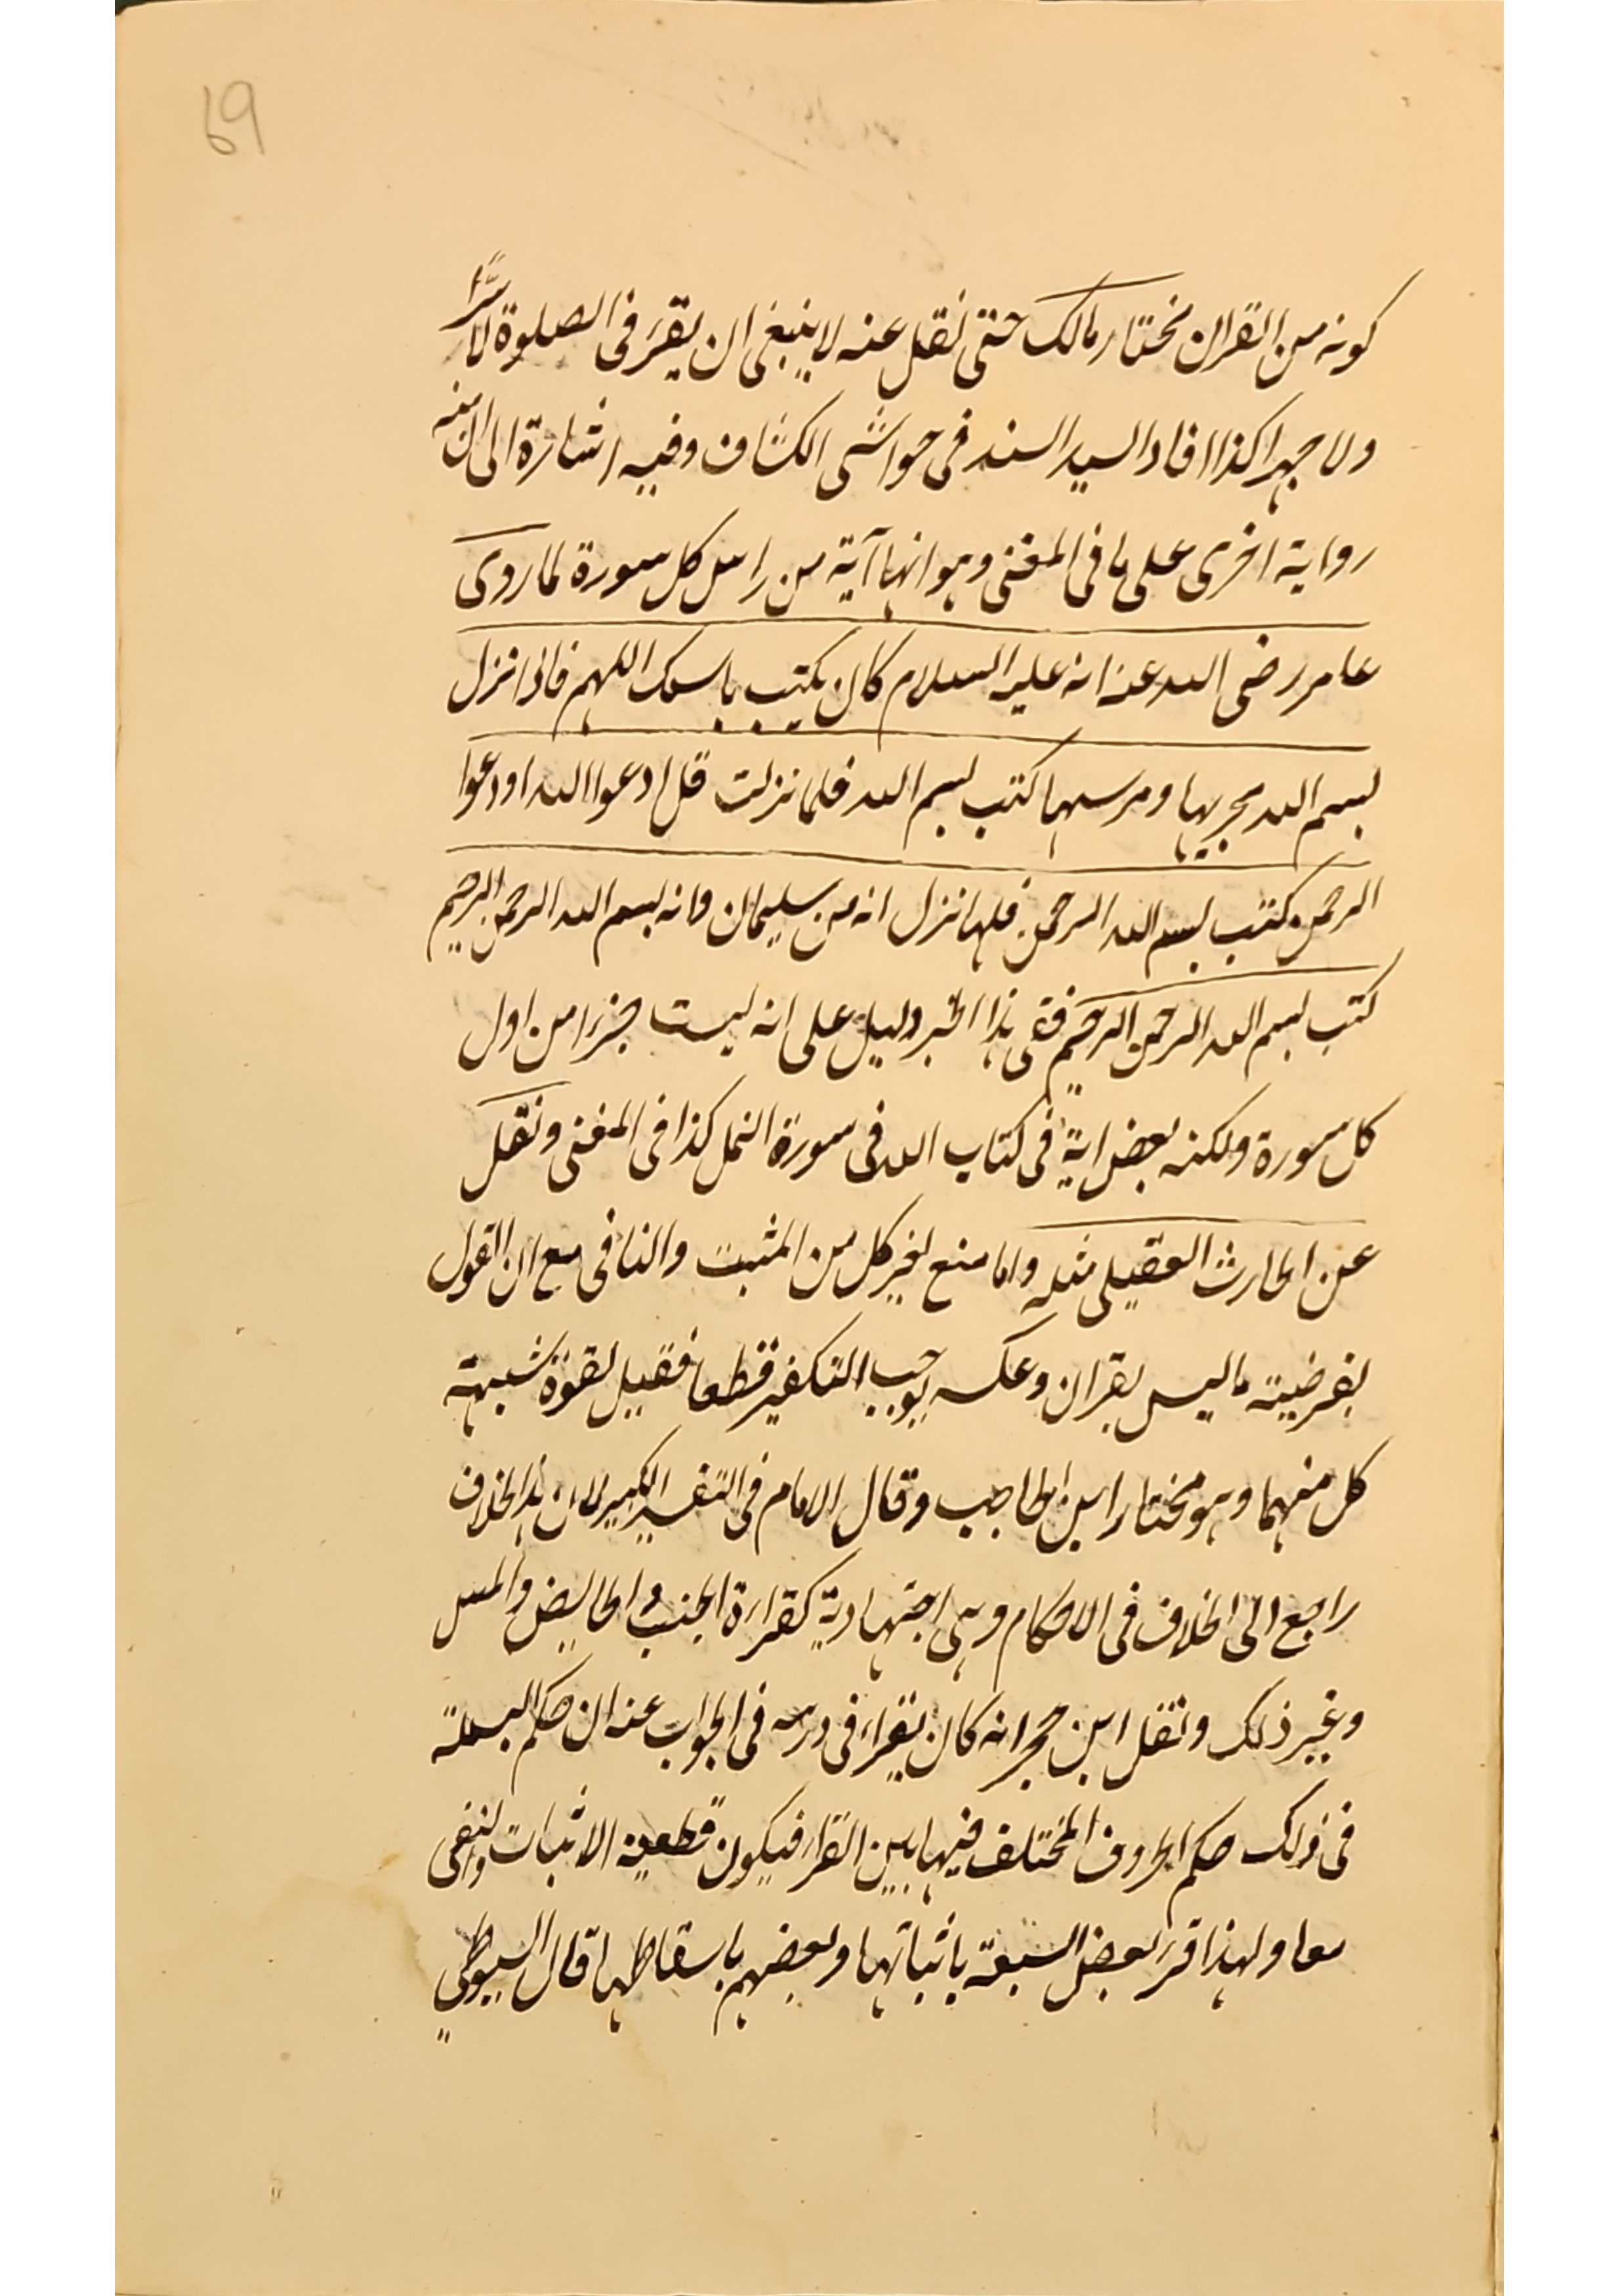 69
كونه من القران مختار مالك حتى نقل عنه لا ينبغى ان يقرء فى الصلوة لا سرًّا
ولا جهرا كذا افاد السيد السند فى حواشى الكشاف وفيه اشارة الى ان منه
رواية اخرى على ما فى المغنى وهو انها آية من راس كل سورة لما روى
عامر رضى الله عنه انه عليه السلام كان يكتب باسمك اللهم فاذا نزل
بسم الله مجريها ومرسيها كتب بسم الله فلما نزلت قل ادعوا الله اودعوا
الرحمن كتب بسم الله الرحمن فلما نزل انه من سليمان وانه بسم الله الرحمن الرحيم
كتب بسم الله الرحمن الرحيم ففى هذا الخبر دليل على انه ليست جزءا من اول
كل سورة ولكنه بعض اية فى كتاب الله فى سورة النمل كذا فى المغنى ونقل
عن الحارث العقيلى مثله واما منع لغير كل من المثبت والنافى مع ان القول
بفرضية ما ليس بقران وعكسه يوجب التكفير قطعا فقيل لقوة شبهة
كل منهما وهو مختار ابن الحاجب وقال الامام فى التفسير الكبير لان هذا الخلاف
راجع الى الخلاف فى الاحكام وهى اجتهادية كقراءة الجنب والحايض والمس
وغير ذلك ونقل ابن حجر انه كان يقراء فى درسه فى الجواب عنه ان حكم البسملة
فى ذلك حكم الحروف المختلف فيها بين القراء فيكون قطعية الاثبات والنفى
معا ولهذا قرء بعض السبعة باثباتها وبعضهم باسقاطها قال السيوطى